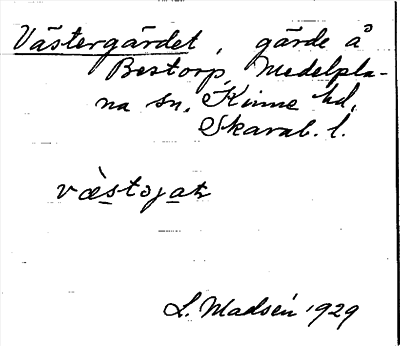 Västergärdet, gärde å
Bestorp, Medelpla-
na sn, Kinne hd,
Skarab. l.
L. Madsén 1929